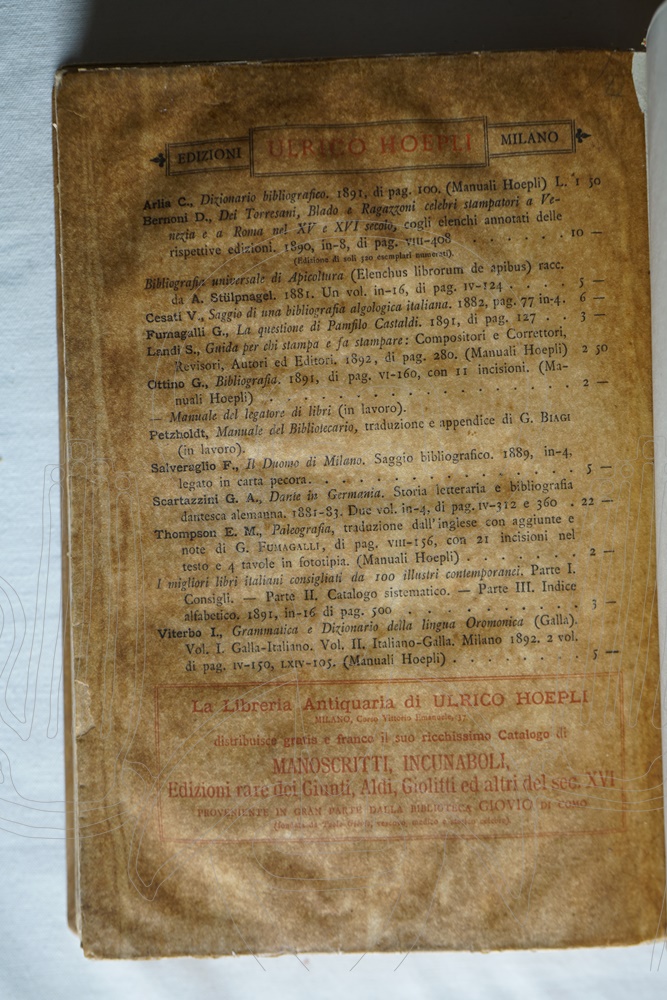 EDIZIONI ULRICO HOEPLI MILANO
Arlia C., Dizionario bibliografico. 1891, di pag. 100. (Manuali Hoepli) L. 1 50
Bernoni D., Dei Torresani, Blado e Ragazzoni celebri stampatori a Ve-
nezia e a Roma nel XV e XVI secolo, cogli elenchi annotati delle
rispettive edizioni. 1890, in-8, di pag. VIII-408 . . . . . . 10 —
(Edizione di soli 320 esemplari numerati).
Bibliografia universale di Apicoltura (Elenchus librorum de apibus) racc.
da A. Stülpnagel. 1881. Un vol. in-16, di pag. IV-124 . . . . 5 —
Cesati V., Saggio di una bibliografia algologica italiana. 1882, pag. 77 in-4. 6 —
Fumagalli G., La questione di Pamfilo Castaldi. 1891, di pag. 127 . . 3 —
Landi S., Guida per chi stampa e fa stampare: Compositori e Correttori,
Revisori, Autori ed Editori. 1892, di pag. 280. (Manuali Hoepli) 2 50
Ottino G., Bibliografia. 1891, di pag. VI-160, con 11 incisioni. (Ma-
nuali Hoepli) . . . . . . . . . . . . . . . 2 —
— Manuale del legatore di libri (in lavoro).
Petzholdt, Manuale del Bibliotecario, traduzione e appendice di G. BIAGI
(in lavoro).
Salveraglio F., Il Duomo di Milano. Saggio bibliografico. 1889, in-4,
legato in carta pecora. . . . . . . . . . . . . 5 —
Scartazzini G. A., Dante in Germania. Storia letteraria e bibliografia
dantesca alemanna. 1881-83. Due vol. in-4, di pag. IV-312 e 360 . 22 —
Thompson E. M., Paleografia, traduzione dall'inglese con aggiunte e
note di G. FUMAGALLI, di pag. VIII-156, con 21 incisioni nel
testo e 4 tavole in fototipia. (Manuali Hoepli) . . . . . . . 2 —
I migliori libri italiani consigliati da 100 illustri contemporanei. Parte I.
Consigli. — Parte II. Catalogo sistematico. — Parte III. Indice
alfabetico. 1891, in-16 di pag. 500 . . . . . . . . . 3 —
Viterbo I., Grammatica e Dizionario della lingua Oromonica (Galla).
Vol. I. Galla-Italiano. Vol. II. Italiano-Galla. Milano 1892. 2 vol.
di pag. IV-150, LXIV-105. (Manuali Hoepli) . . . . . . . 5 —
La Libreria Antiquaria di ULRICO HOEPLI
MILANO, Corso Vittorio Emanuele, 37
distribuisce gratis e franco il suo ricchissimo Catalogo di
MANOSCRITTI, INCUNABOLI,
Edizioni rare dei Giunti, Aldi, Giolitti ed altri del sec. XVI
PROVENIENTE IN GRAN PARTE DALLA BIBLIOTECA GIOVIO DI COMO